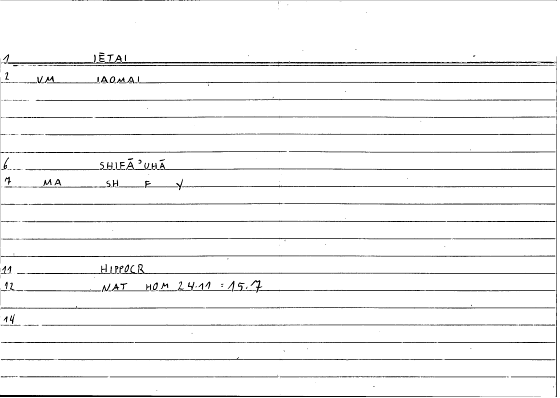 1 IĒTAI
2 VM IAOMAI
6 SHIFĀ'UHĀ
7 MA SH F Y
11 HIPPOCR
12 NAT HOM 24.11 : 15.7
14